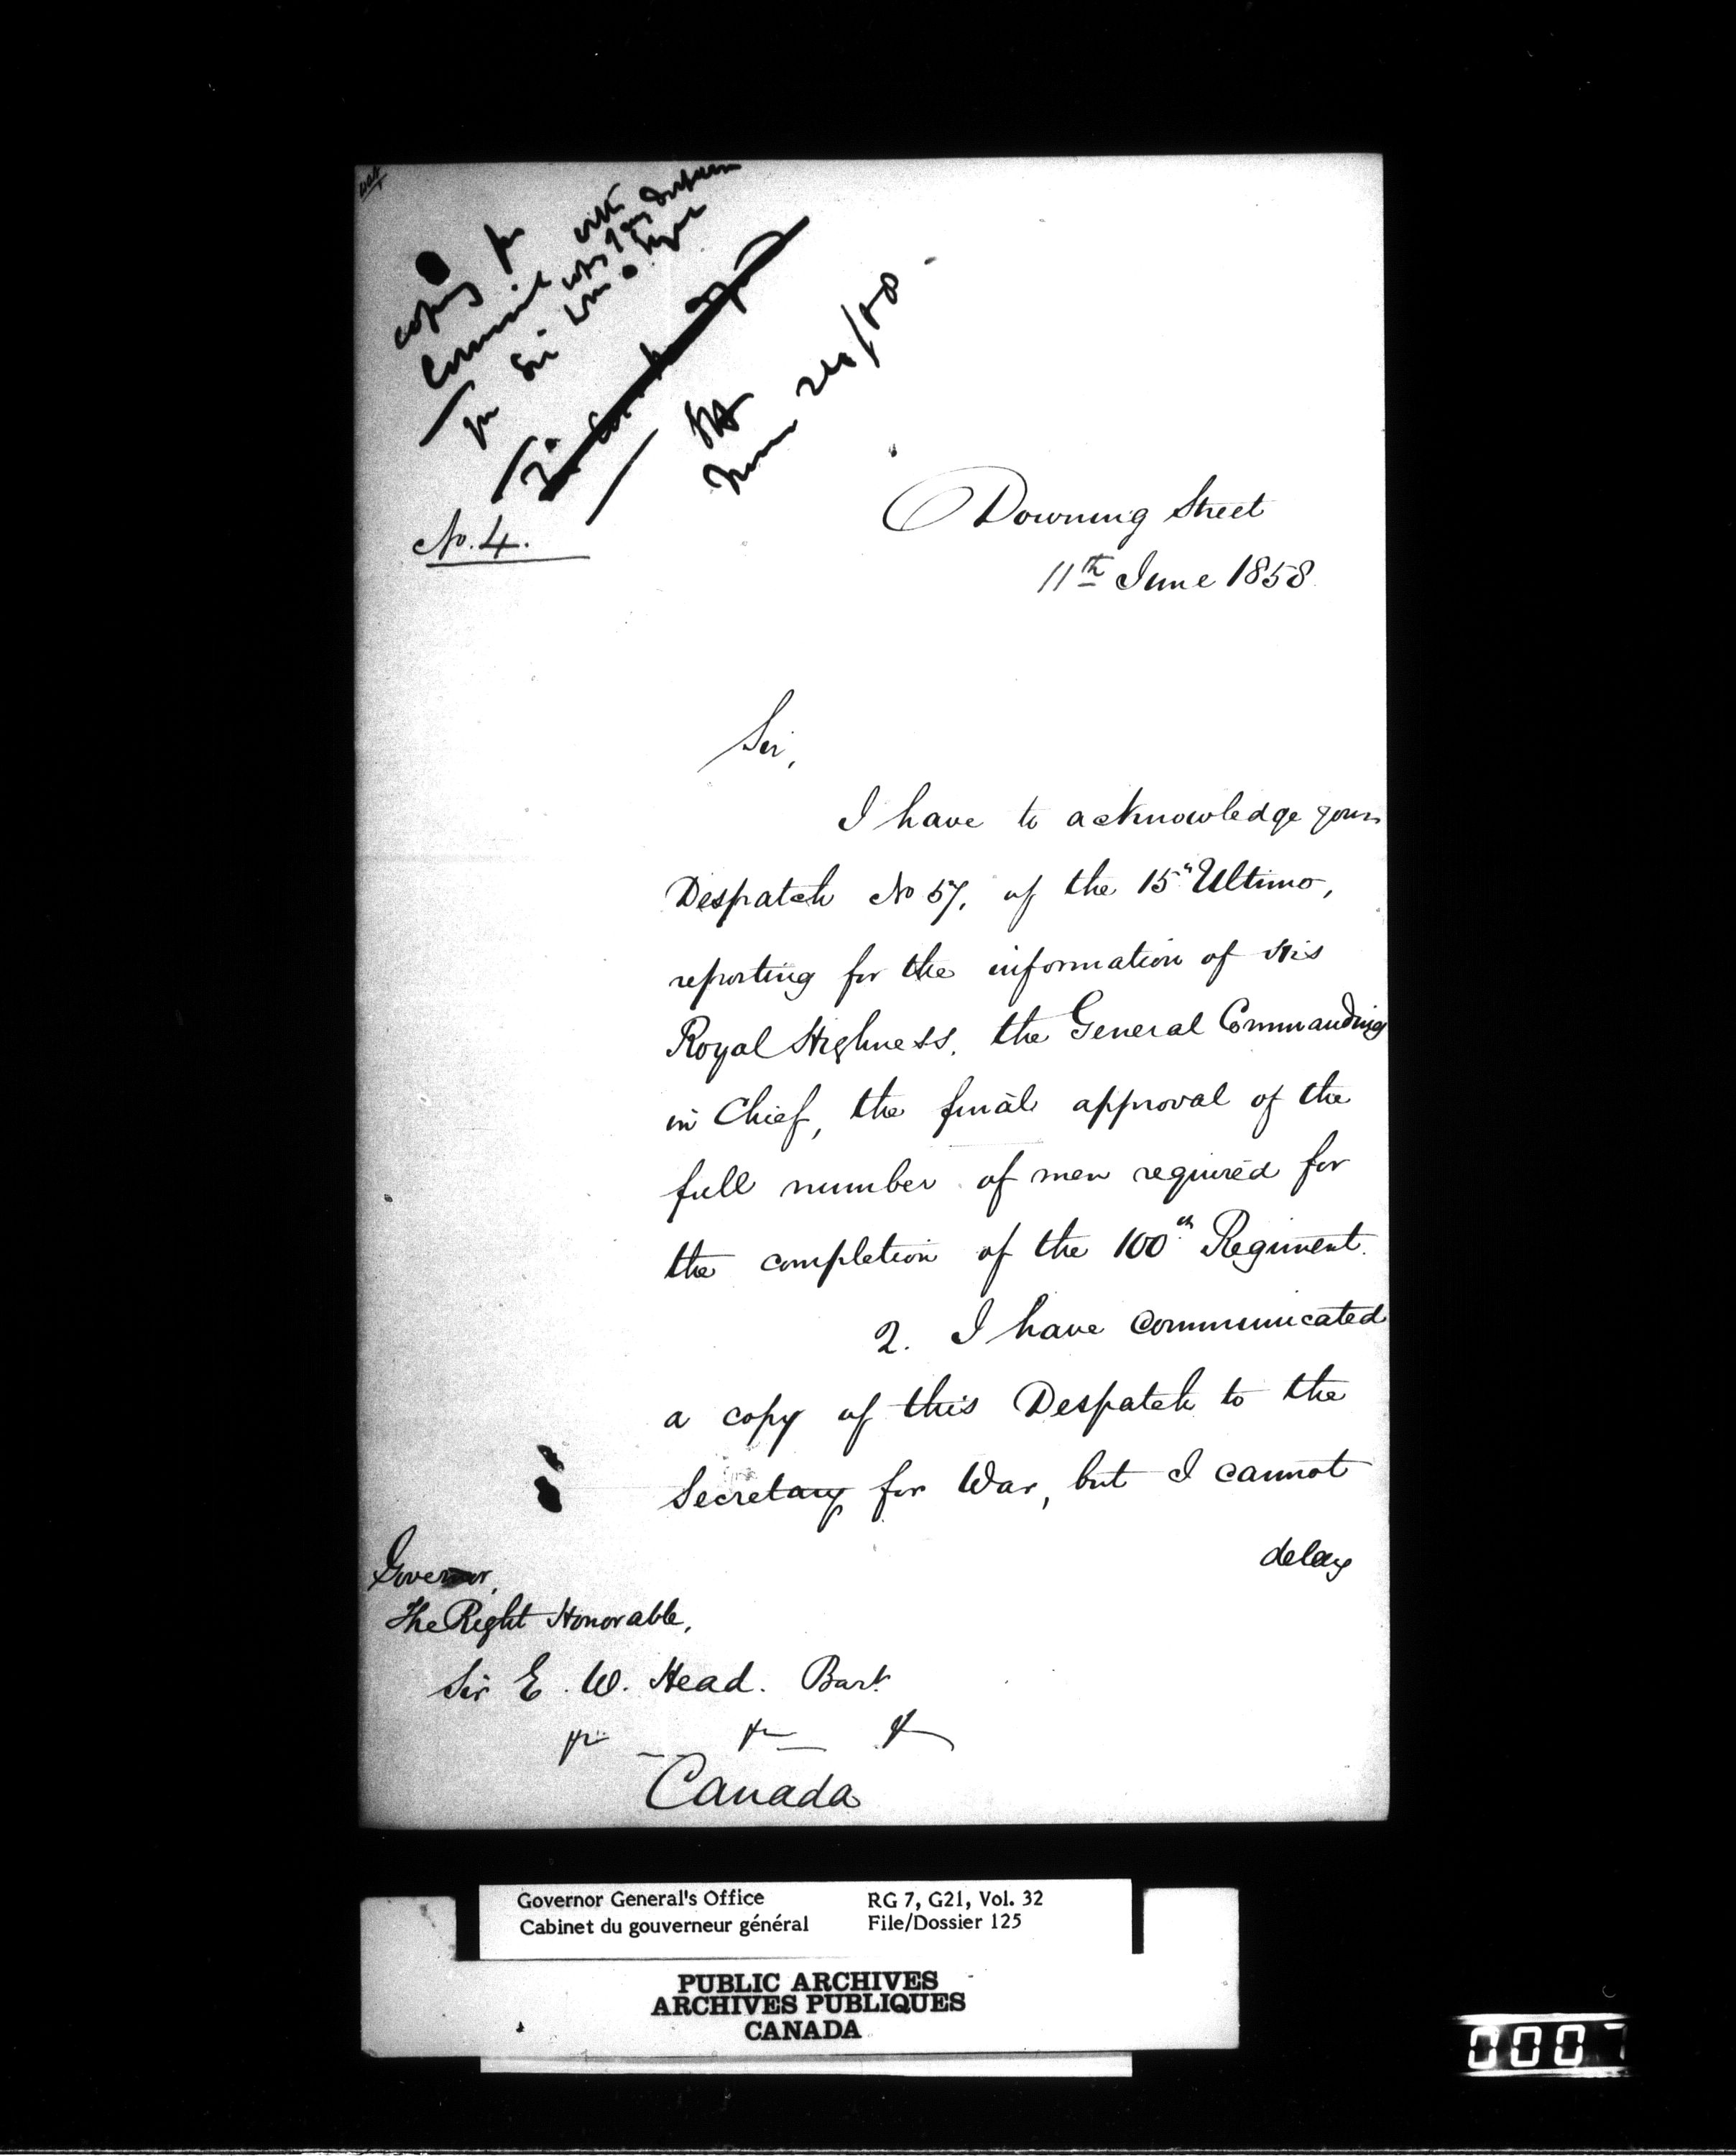 copy for
Council with
for Sir Wm
June 24/58
No. 4.
Downing Street
11th June 1858
Sir,
I have to acknowledge your
Despatch No 57, of the 15th Ultimo,
reporting for the information of His
Royal Highness, the General Commanding
in Chief, the final approval of the
full number of men required for
the completion of the 100th Regiment.
2. I have communicated
a copy of this Despatch to the
Secretary for War, but I cannot
delay
Governor
The Right Honorable,
Sir E. W. Head. Bart.
&c &c &c
Canada
Governor General's Office RG 7, G21, Vol. 32
Cabinet du gouverneur général File/Dossier 125
PUBLIC ARCHIVES
ARCHIVES PUBLIQUES
CANADA
0007